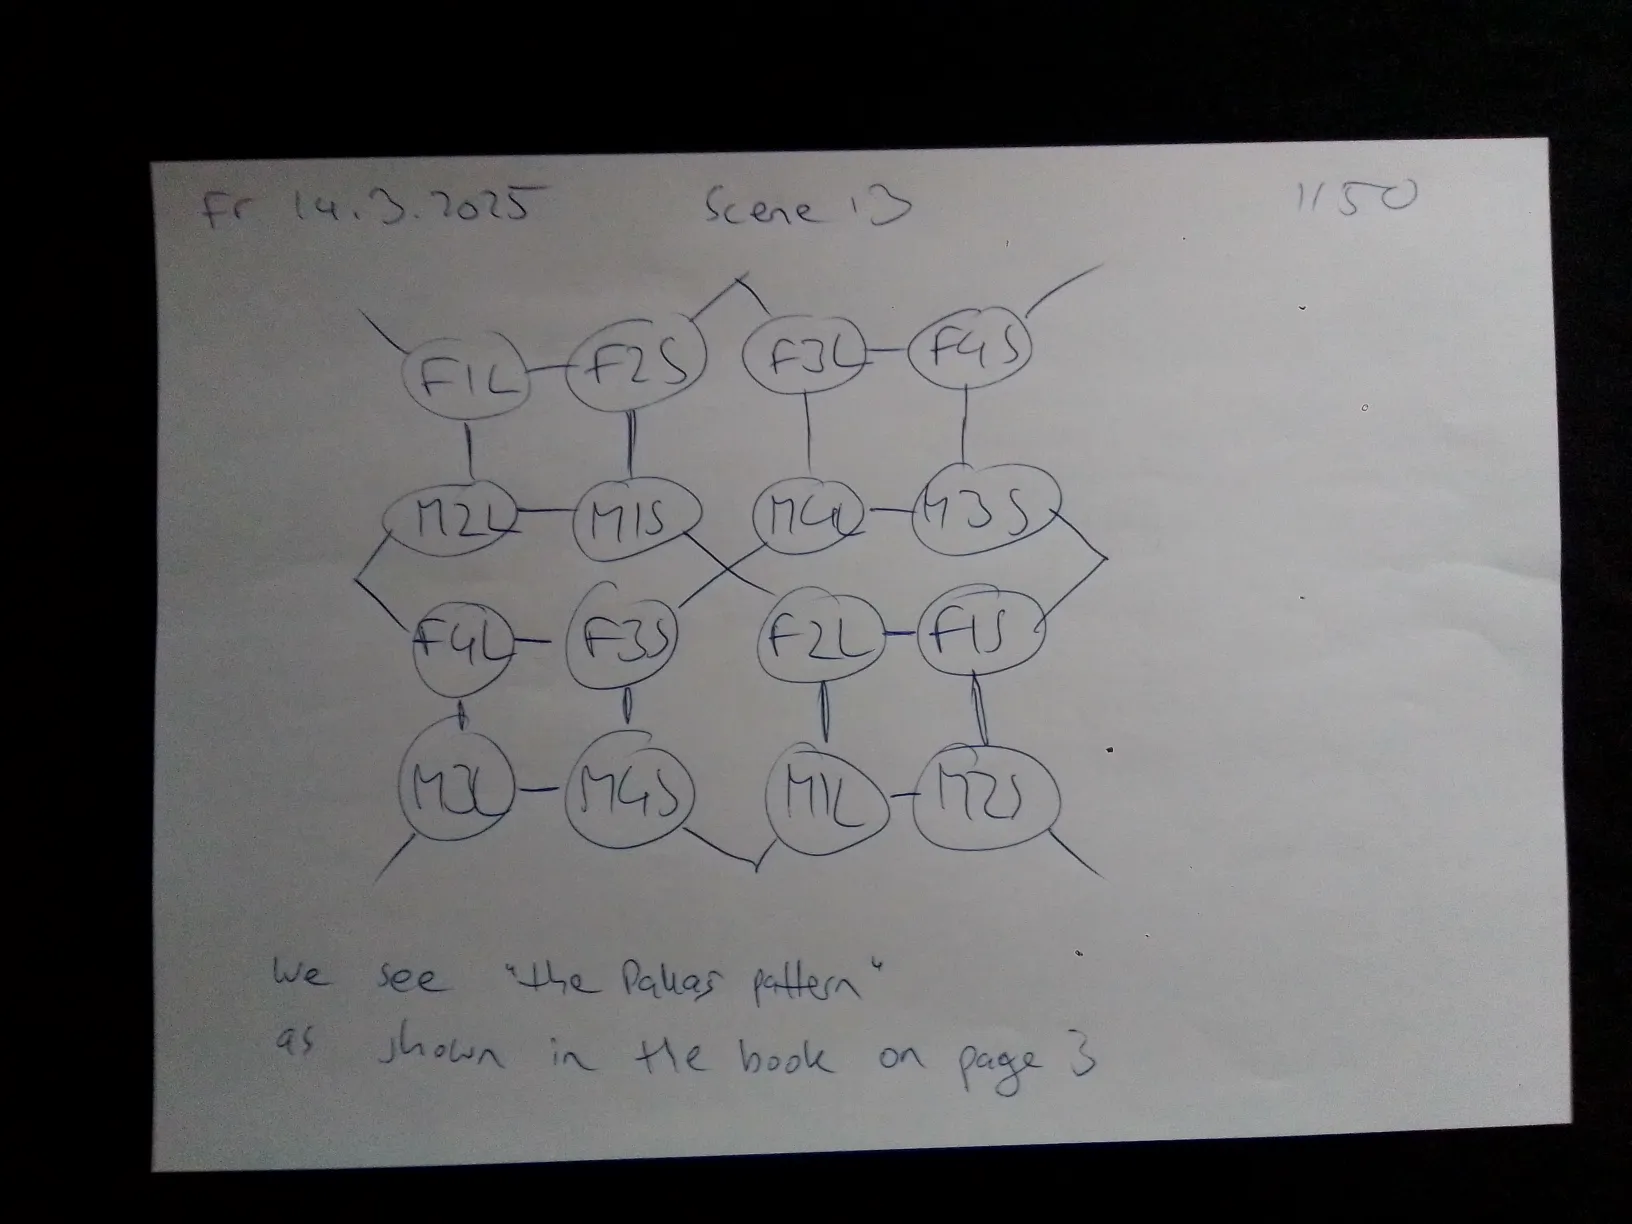 Fr 14.3.2025 Scene 13 1150
F1L F2S F3L F4S
M2L M1S M4L M3S
F4L F3S F2L F1S
M3L M4S M1L M2S
We see "the pattern"
as shown in the book on page 3